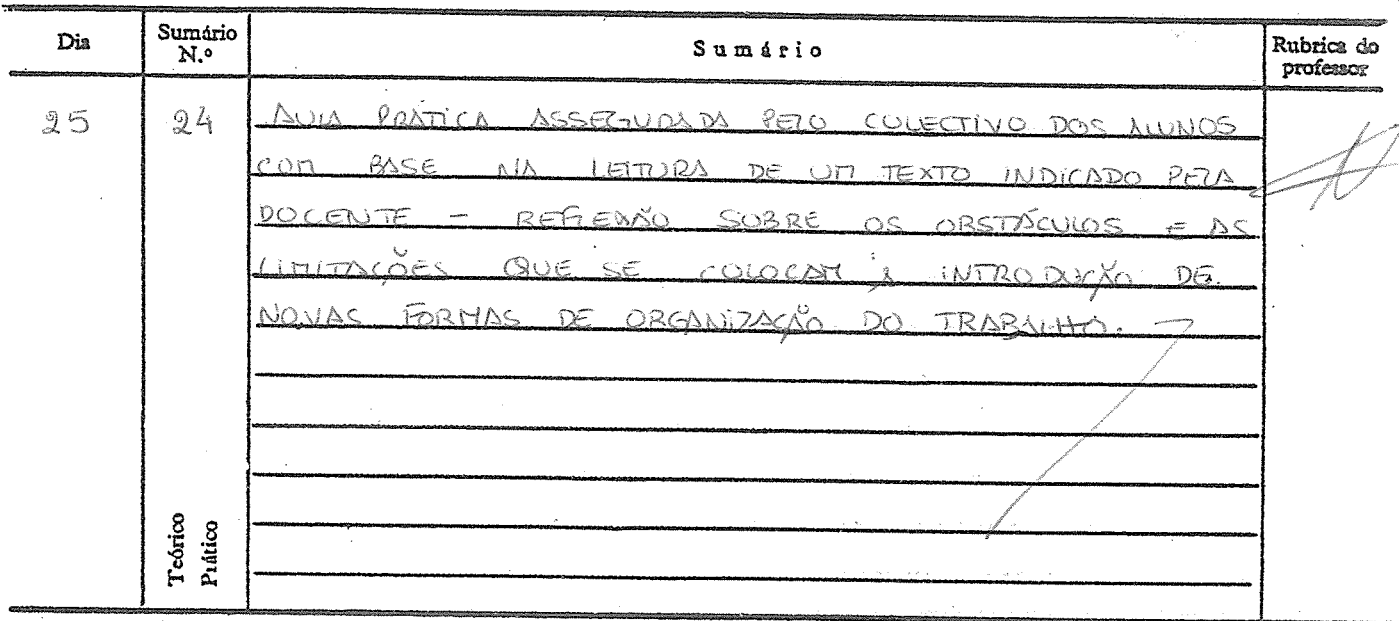 Dia Sumário N.º Sumário Rubrica do professor
25 24 AULA PRÁTICA ASSEGURADA PELO COLECTIVO DOS ALUNOS
COM BASE NA LEITURA DE UM TEXTO INDICADO PELA
DOCENTE - REFLEXÃO SOBRE OS OBSTÁCULOS E AS
LIMITAÇÕES QUE SE COLOCAM À INTRODUÇÃO DE
NOVAS FORMAS DE ORGANIZAÇÃO DO TRABALHO.
Teórico
Prático